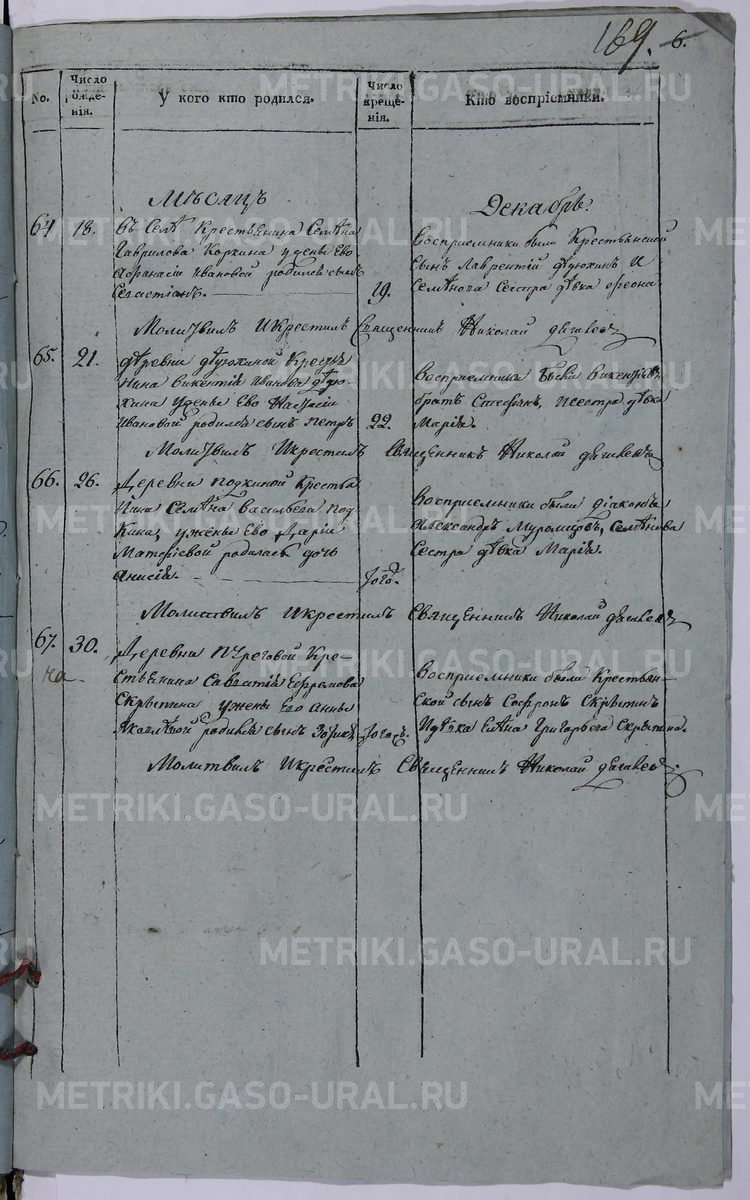 169. 6.
No.
Число рожде- нія.
У кого кто родился.
Число креще- нія.
Кто воспріемники.
Мѣсяцъ Декабрь
64 18. въ Селѣ Крестьянина Семѣна
Гаврилова Коркина у жены Ево
Афанасіи Ивановой родился сынъ
Севастіанъ. 19.
Восприемники были Крестьянскій
сынъ Лаврентій И
Семѣнова Сестра дѣвка
Молитвилъ И Крестилъ Священникъ Николай
65. 21. деревни Кресть
янина Викентія Иванова
у жены Ево Настасіи
Ивановой родился сынъ Петръ 22.
Восприемники были Викентіевъ
братъ Стефанъ, и сестра дѣвка
Марія.
Молитвилъ И крестилъ Священникъ Николай
66. 26. Деревни Подкиной Крестья
нина Семѣна Васильева Под
кина, у жены Ево Дарьи
Матфіевой родилась дочь
Анисія. Того.
Восприемники были діаконъ
Александръ Муромцовъ, Семѣнова
Сестра дѣвка Марія.
Молитвилъ И крестилъ Священникъ Николай
67. 30. Деревни Кре-
стьянина Савватія Ефремова
Скрыпина у жены Его Анны
Яковлевой родился сынъ Того.
Восприемники были Крестьян-
ской сынъ Софронъ Скрыпинъ
И дѣвка Елена Григорьева Скрыпина.
Молитвилъ И крестилъ Священникъ Николай
METRIKI.GASO-URAL.RU